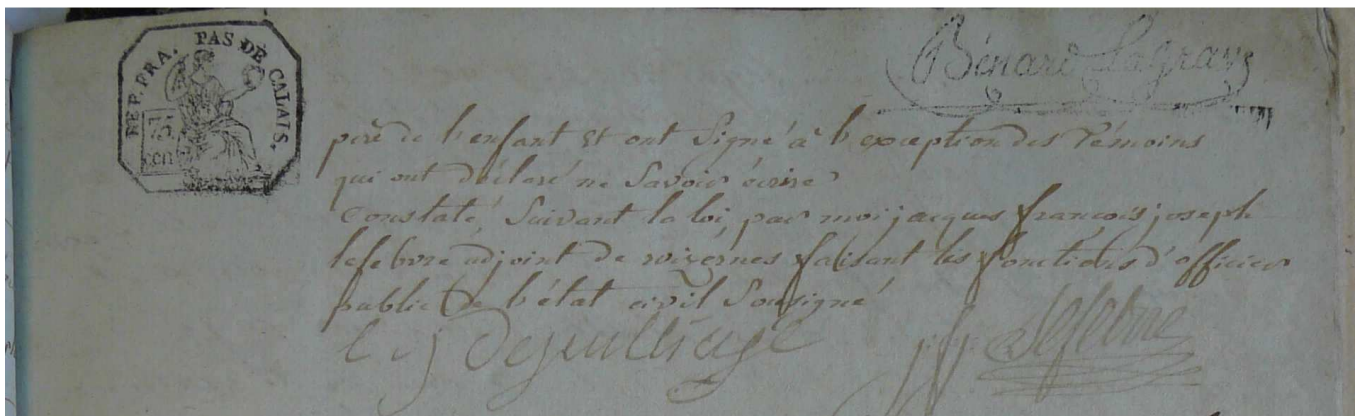 REP. FRA. PAS DE CALAIS.
25
cen
Bénard Lagrave
père de l'enfant et ont Signé à l'exception des témoins
qui ont déclaré ne Savoir écrire
Constaté, Suivant la loi, par moi jacques françois joseph
lefebvre adjoint de wizernes faisant les fonctions d'officier
public de l'état civil Soussigné
Lefebvre